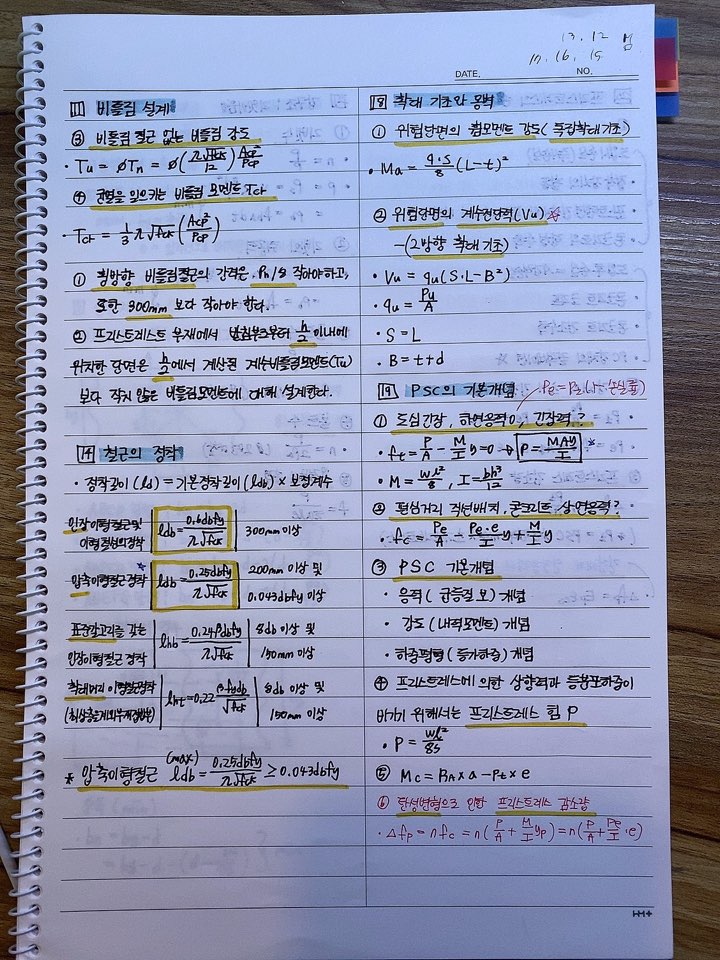 13. 12
17. 16. 15
DATE. NO.
11 비틀림 설계
③ 비틀림 철근 없는 비틀림 강도
· Tu = ∅Tn = ∅(λ√fck/12) Acp²/Pcp
④ 균열을 일으키는 비틀림 모멘트, Tcr
· Tcr = 1/3 λ√fck (Acp²/Pcp)
① 횡방향 비틀림철근의 간격은 Ph/8 작아야하고,
또한 300mm 보다 작아야 한다.
② 프리스트레스트 부재에서 받침부로부터 h/2 이내에
위치한 단면은 h/2에서 계산된 계수비틀림모멘트(Tu)
보다 작지 않은 비틀림모멘트에 대해 설계한다.
14 철근의 정착
· 정착길이 (ld) = 기본정착길이 (ldb) × 보정계수
인장이형철근 및 이형철선의정착 ldb = 0.6dbfy/λ√fck 300mm 이상
* 압축이형철근 정착 ldb = 0.25dbfy/λ√fck 200mm 이상 및 0.043dbfy 이상
표준갈고리를 갖는 인장이형철근 정착 lhb = 0.24βdbfy/λ√fck 8db 이상 및 150mm 이상
확대머리 이형철근정착 lht = 0.22 β·fydb/√fck 8db 이상 및 150mm 이상
* 압축이형철근 (max) ldb = 0.25dbfy/λ√fck ≥ 0.043dbfy
18 확대 기초와 옹벽
① 위험단면의 휨모멘트 강도 (독립확대기초)
· Ma = q·S/8 (L-t)²
② 위험단면의 계수전단력(Vu) ☆
-(2방향 확대기초)
· Vu = qu(S·L-B²)
· qu = Pu/A
· S = L
· B = t+d
19 PSC의 기본개념 Pe = Pi(1-손실률)
① 도심긴장, 하연응력 0, 긴장력?
· ft = P/A - M/I y = 0 → P = MAy/I *
· M = wl²/8, I = bh³/12
② 편심거리 직선배치, 콘크리트, 상연응력?
· fc = Pe/A - Pe·e/I y + M/I y
③ PSC 기본개념
· 응력 (균등질 보) 개념
· 강도 (내력모멘트) 개념
· 하중평형 (등가하중) 개념
④ 프리스트레스에 의한 상향력과 등분포하중이
비기기 위해서는 프리스트레스 힘 P
· P = wl²/8s
⑤ Mc = RA×a - Pt×e
⑥ 탄성변형으로 인한 프리스트레스 감소량
· Δfp = nfc = n(P/A + M/I yp) = n(P/A + Pe/I · e)